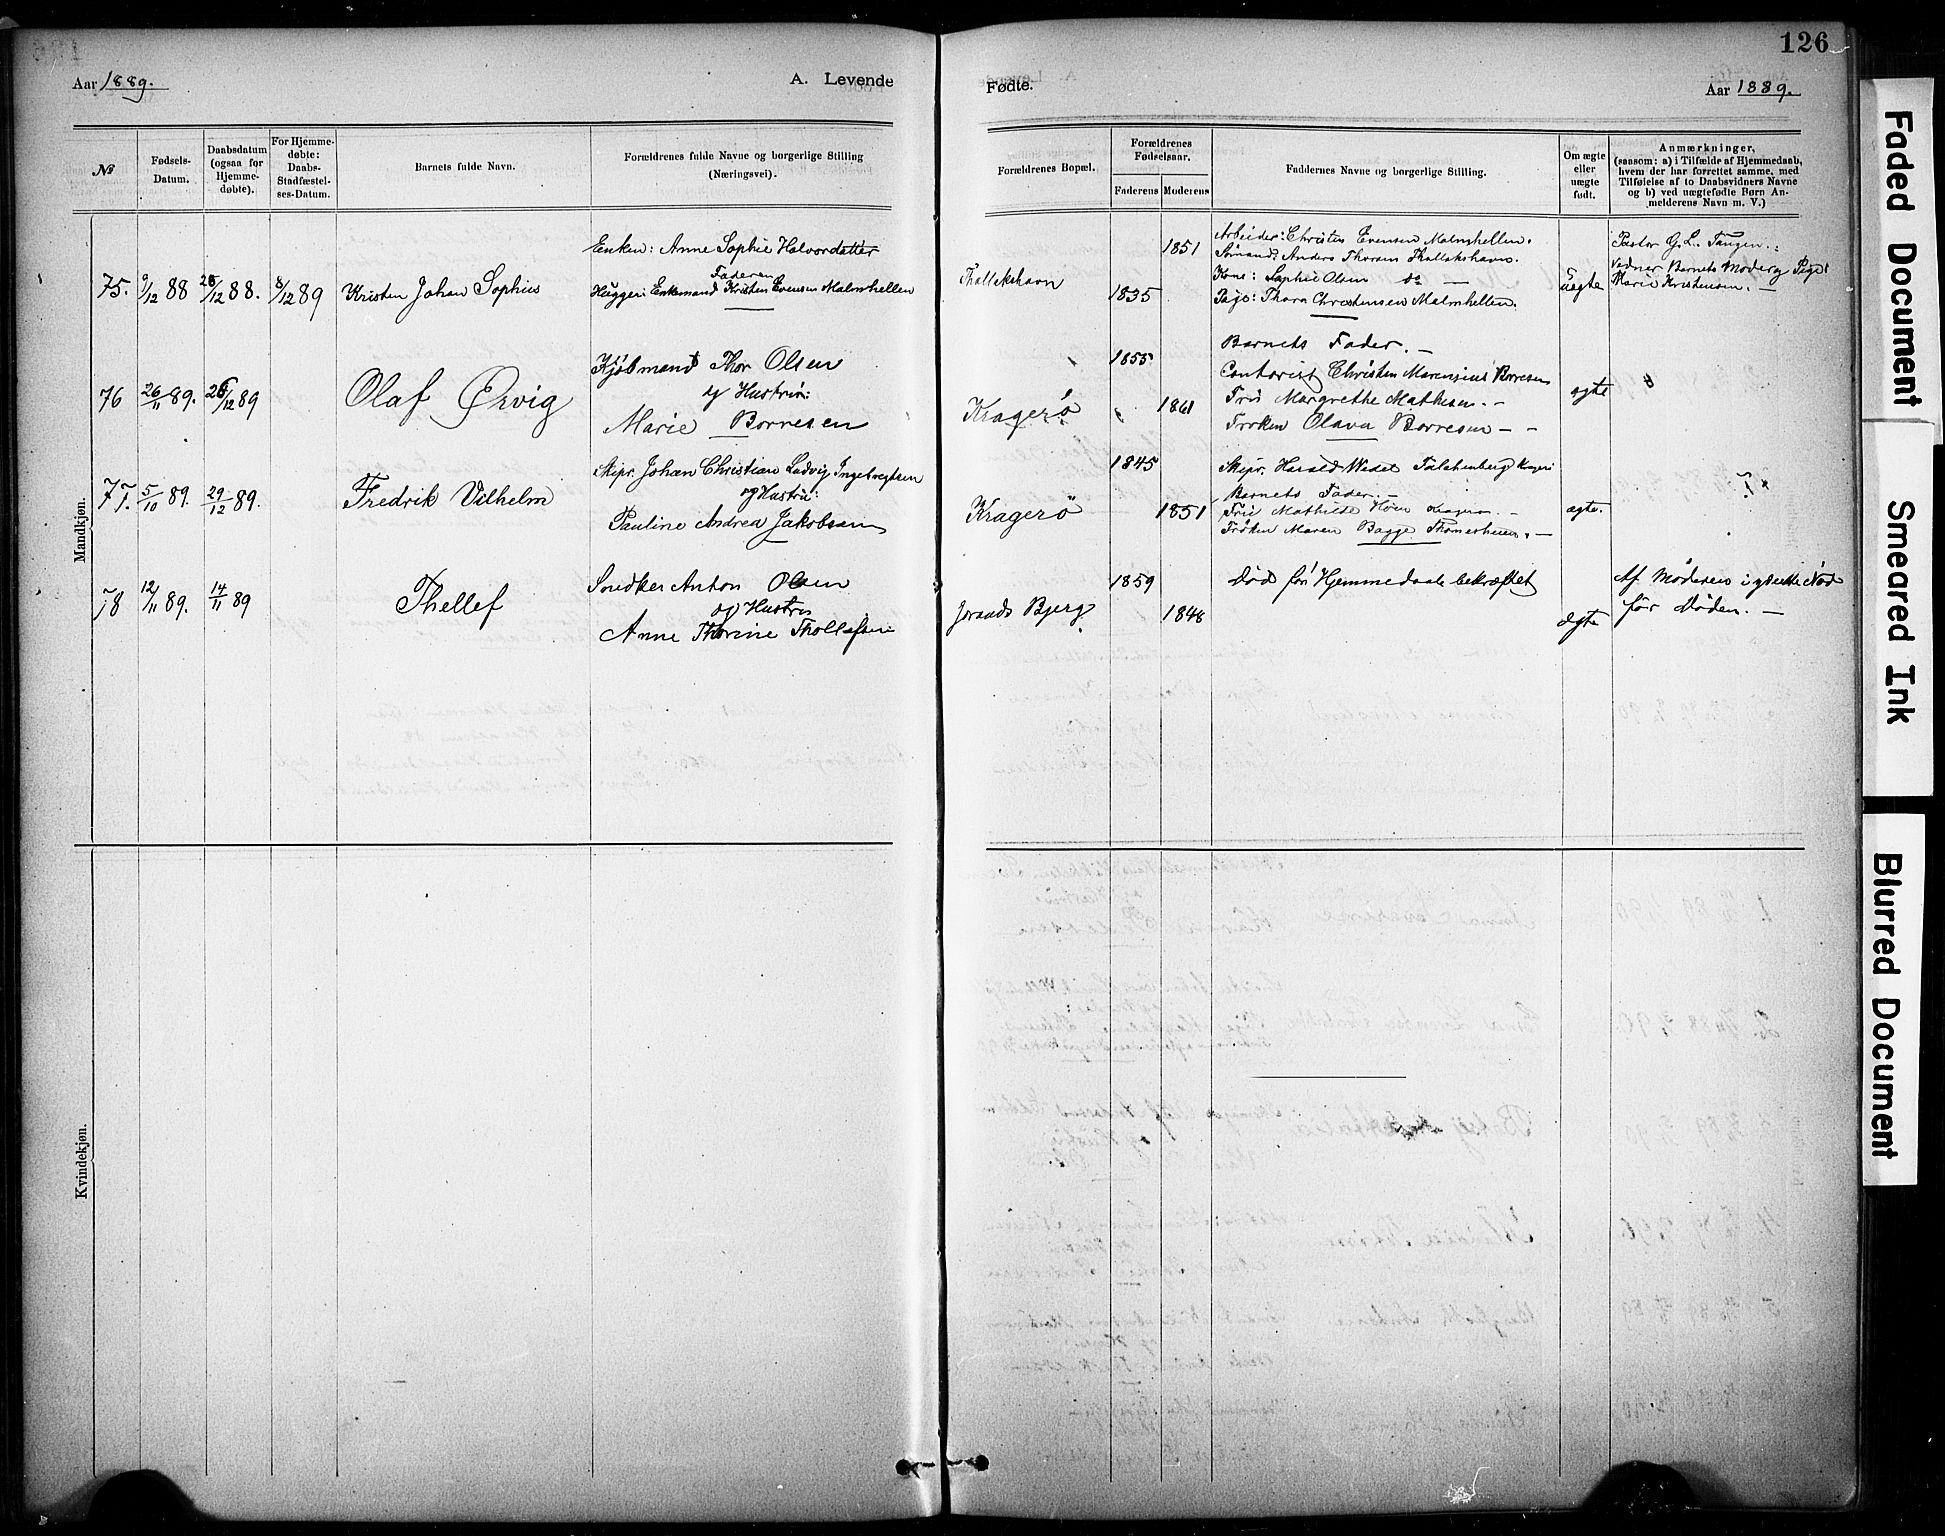 126
Aar 1889.
A. Levende
Fødte.
Aar 1889.
No
Fødsels-
Datum.
Daabsdatum
(ogsaa for
Hjemme-
døbte).
For Hjemme-
døbte:
Daabs-
Stadfæstel-
ses-Datum.
Barnets fulde Navn.
Forældrenes fulde Navne og borgerlige Stilling
(Næringsvei).
Forældrenes Bopæl.
Forældrenes
Fødselsaar.
Faderens
Moderens
Faddernes Navne og borgerlige Stilling.
Om ægte
eller
uægte
født.
Anmærkninger,
(saasom: a) i Tilfælde af Hjemmedaab,
hvem der har forrettet samme, med
Tilføielse af to Daabsvidners Navne
og b) ved uægtefødte Børn An-
melderens Navn m. V.)
Mandkjøn.
75. 9/12 88 26/12 88. 8/12 89 Kristen Johan Sophus
Enken: Anne Sophie Halvordatter
Faderen
Hugger: Enkemand Kristen Evensen Malmhellen
Thollekshavn
1851
1835
Arbeider: Christen Evensen Malmhellen.
Sømand: Anders Thorsen Thollekshavn.
Kone: Sophie Olsen do —
Pige: Thora Christensen Malmhellen.
uægte
Pastor G. L. Tangen.
Vidner Barnets Moder og Pige
Marie Kristensen. —
76 26/11 89. 26/12 89 Olaf Ørvig
Kjøbmand Thor Olsen
og Hustru:
Marie Borresen
Kragerø
1855
1861
Barnets Fader. —
Contorist Christen Marensius Borresen
Fru Margrethe Mathesen. —
Frøken Olava Borresen — -
ægte
77. 5/10 89. 29/12 89. Fredrik Vilhelm
Skipr. Johan Christian Ludvig Ingebregtsen
og Hustru:
Pauline Andrea Jakobsen
Kragerø
1845
1851
Skipr. Harald Wedel Falchenberg
Barnets Fader. —
Fru Mathilde Høen
Frøken Maren Bagge —
ægte.
78 12/11 89. 14/11 89 Thellef
Snedker Anton Olsen
og Hustru
Anne Thorine Thollefsen
Bjerg
1859
1848
Død før Hjemmedaab bekræftet
ægte
Af Moderen i yderste Nød
før Døden. —
Kvindekjøn.
Faded Document
Smeared Ink
Blurred Document